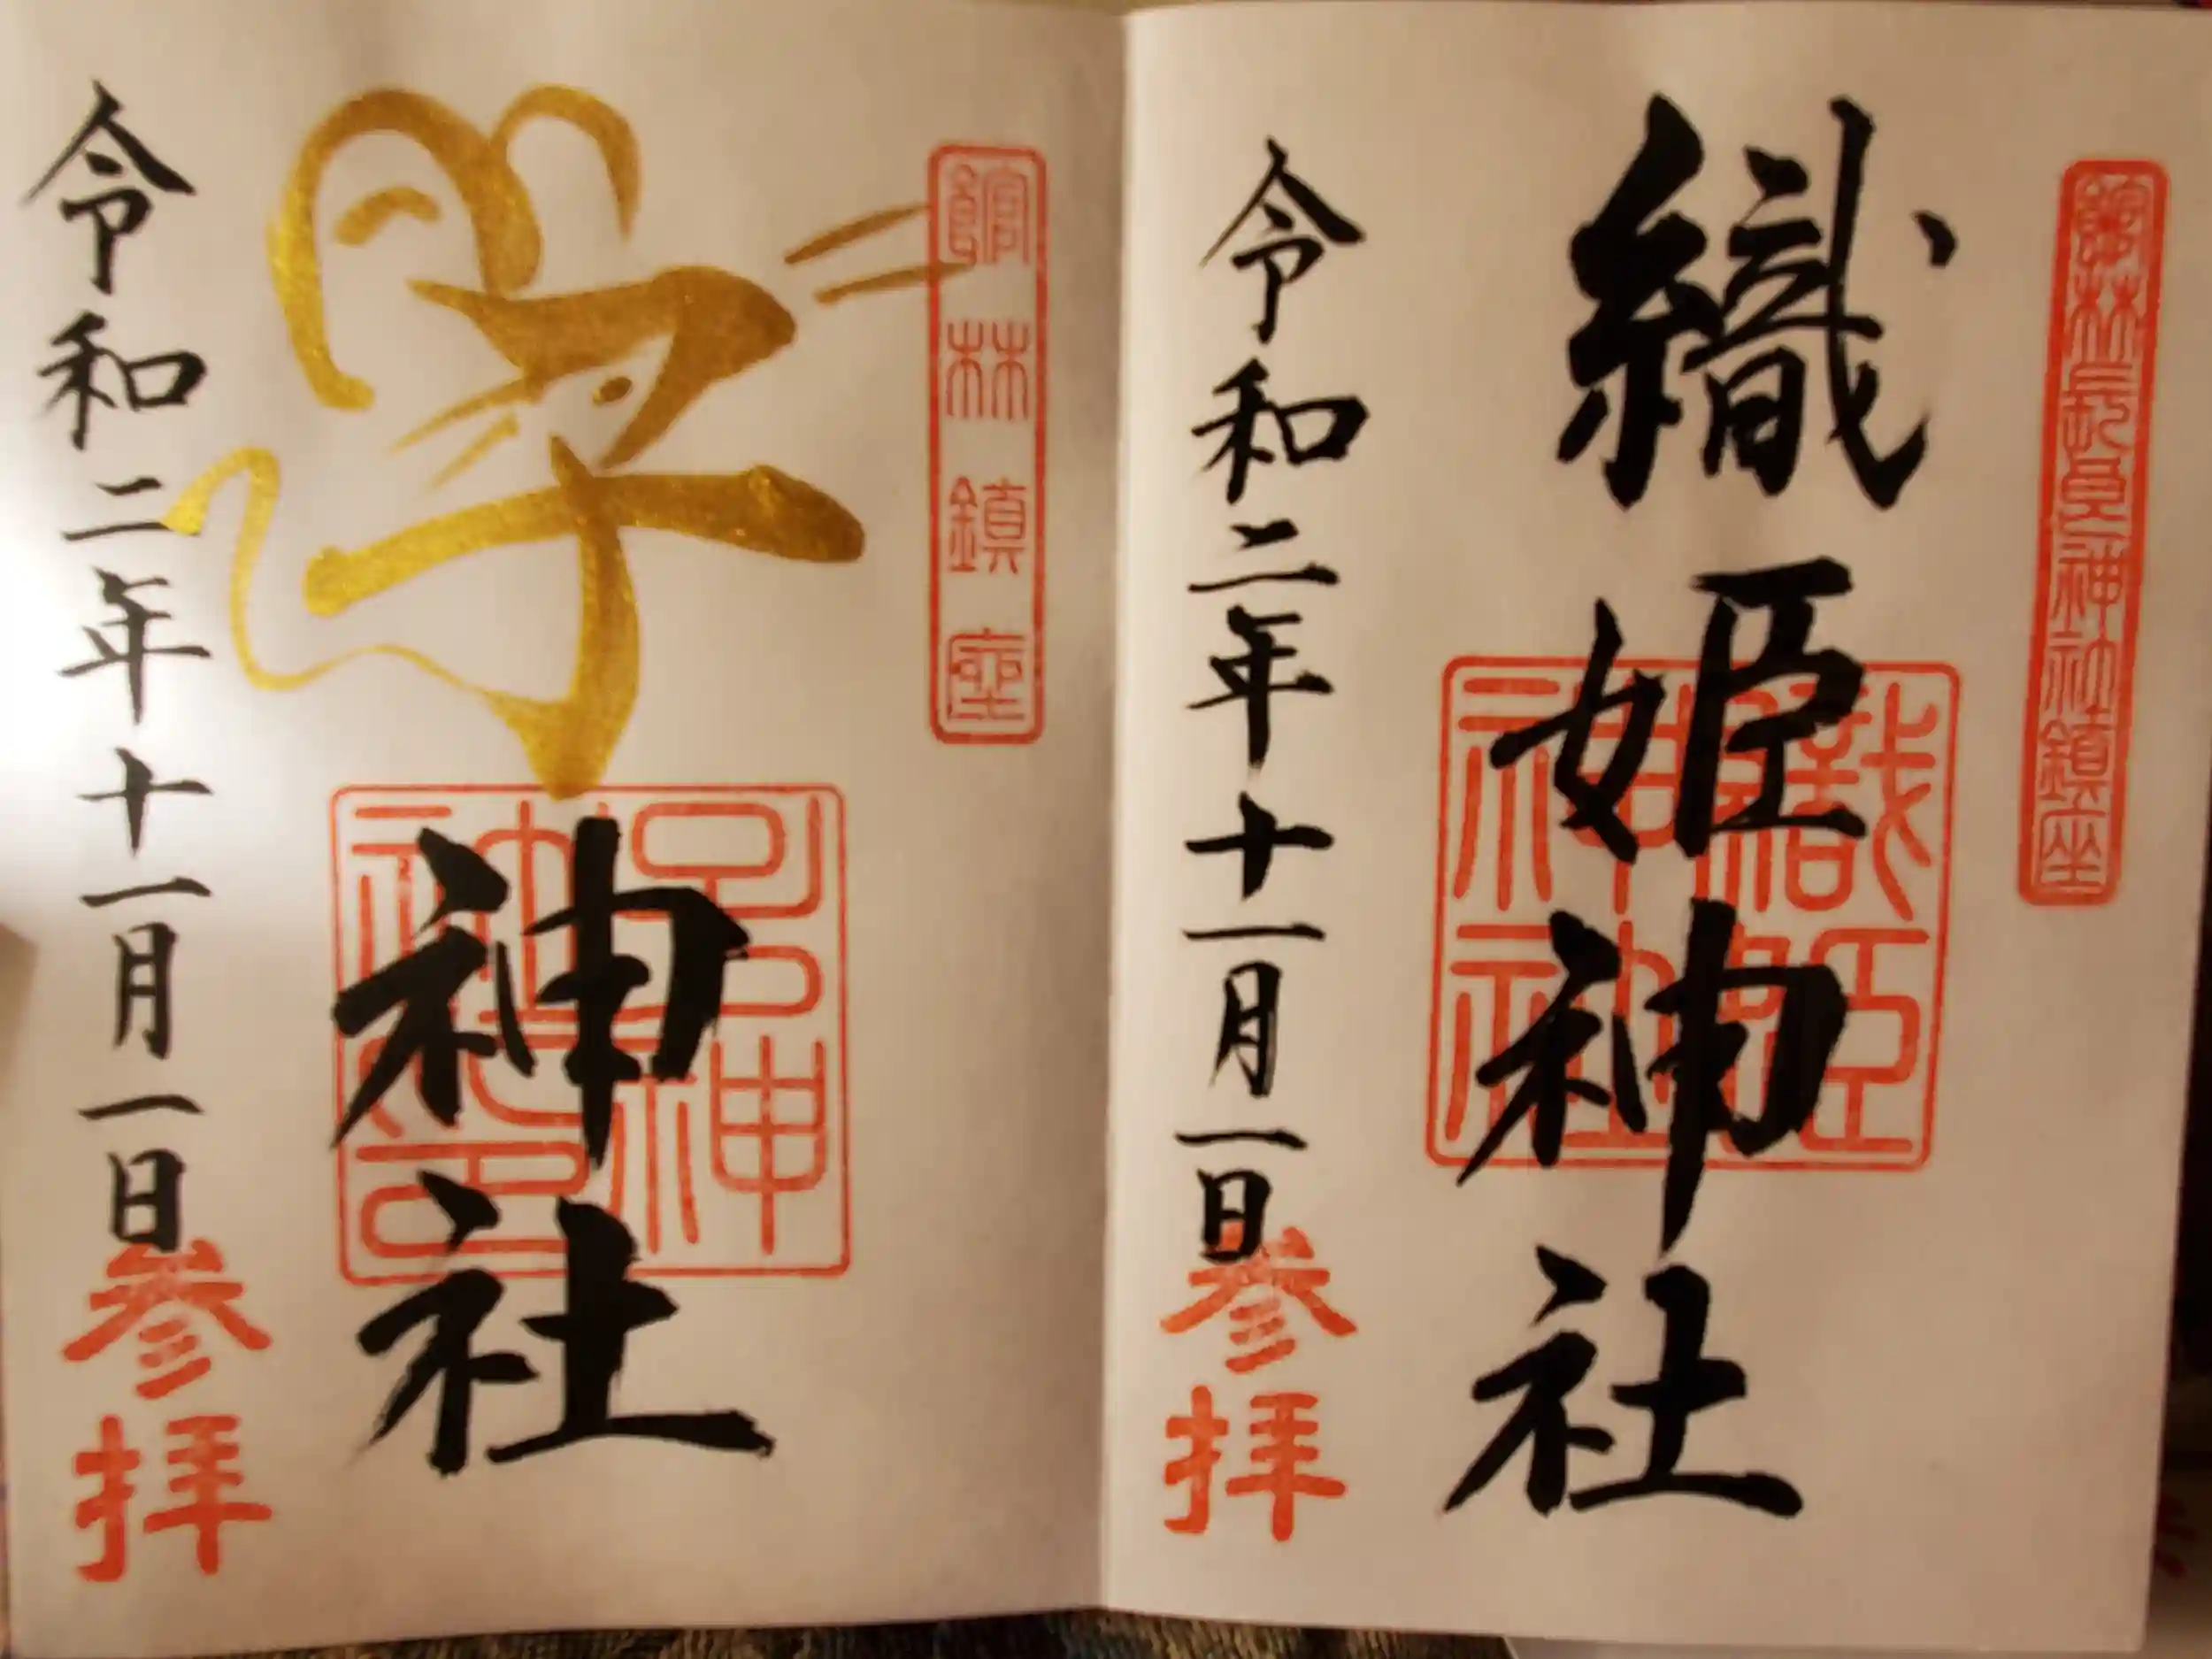 館林長良神社鎮座
織姫神社
令和二年十一月一日
参拝
織姫神社
館林鎮座
子神社
令和二年十一月一日
参拝